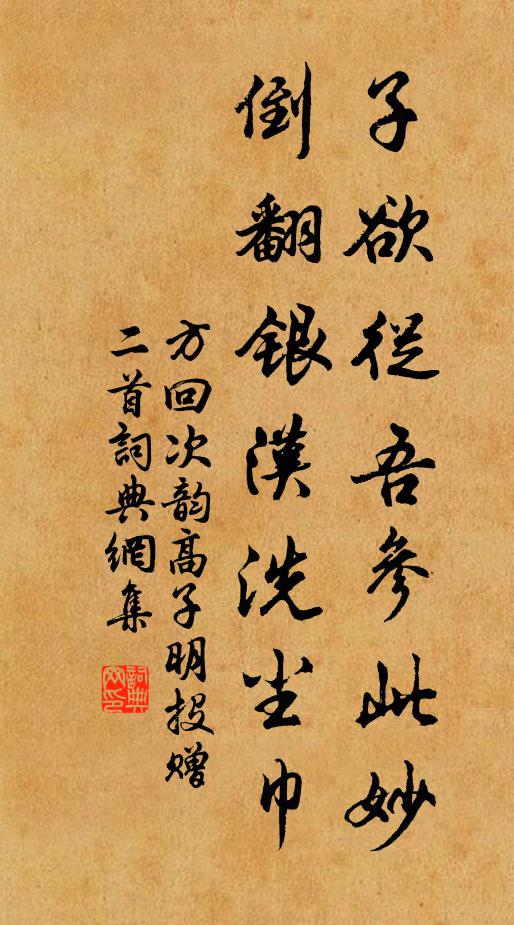 子欲從吾參此妙
倒翻銀漢洗尘巾
方回次韵高子明投赠
二首詞典網集
詞典網印